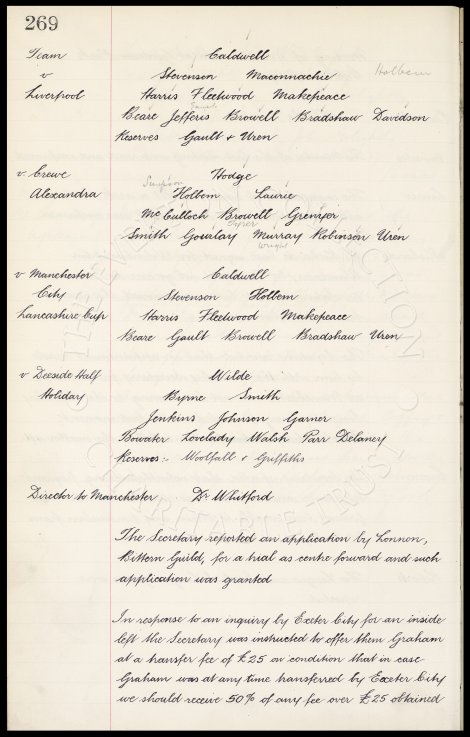 269
Team Caldwell
v Stevenson Maconnachie Holbem
Liverpool Harris Fleetwood Makepeace
Beare Jefferis Browell Bradshaw Davidson
Reserves Gault & Uren
v. Crewe Hodge
Alexandra Simpson Holbem Laurie
McCulloch Browell Grenyer
Smith Gourlay Murray Robinson Uren
Wright
v Manchester Caldwell
City Stevenson Holbem
Lancashire Cup Harris Fleetwood Makepeace
Beare Gault Browell Bradshaw Uren
v Deeside Half Wilde
Holiday Byrne Smith
Jenkins Johnson Garner
Bowater Lovelady Walsh Parr Delaney
Reserves:- Woolfall & Griffiths
Director to Manchester Dr Whitford
The Secretary reported an application by Lonnon,
Bittern Guild, for a trial as centre forward and such
application was granted
In response to an inquiry by Exeter City for an inside
left the Secretary was instructed to offer them Graham
at a transfer fee of £25 on condition that in case
Graham was at any time transferred by Exeter City
we should receive 50% of any fee over £25 obtained